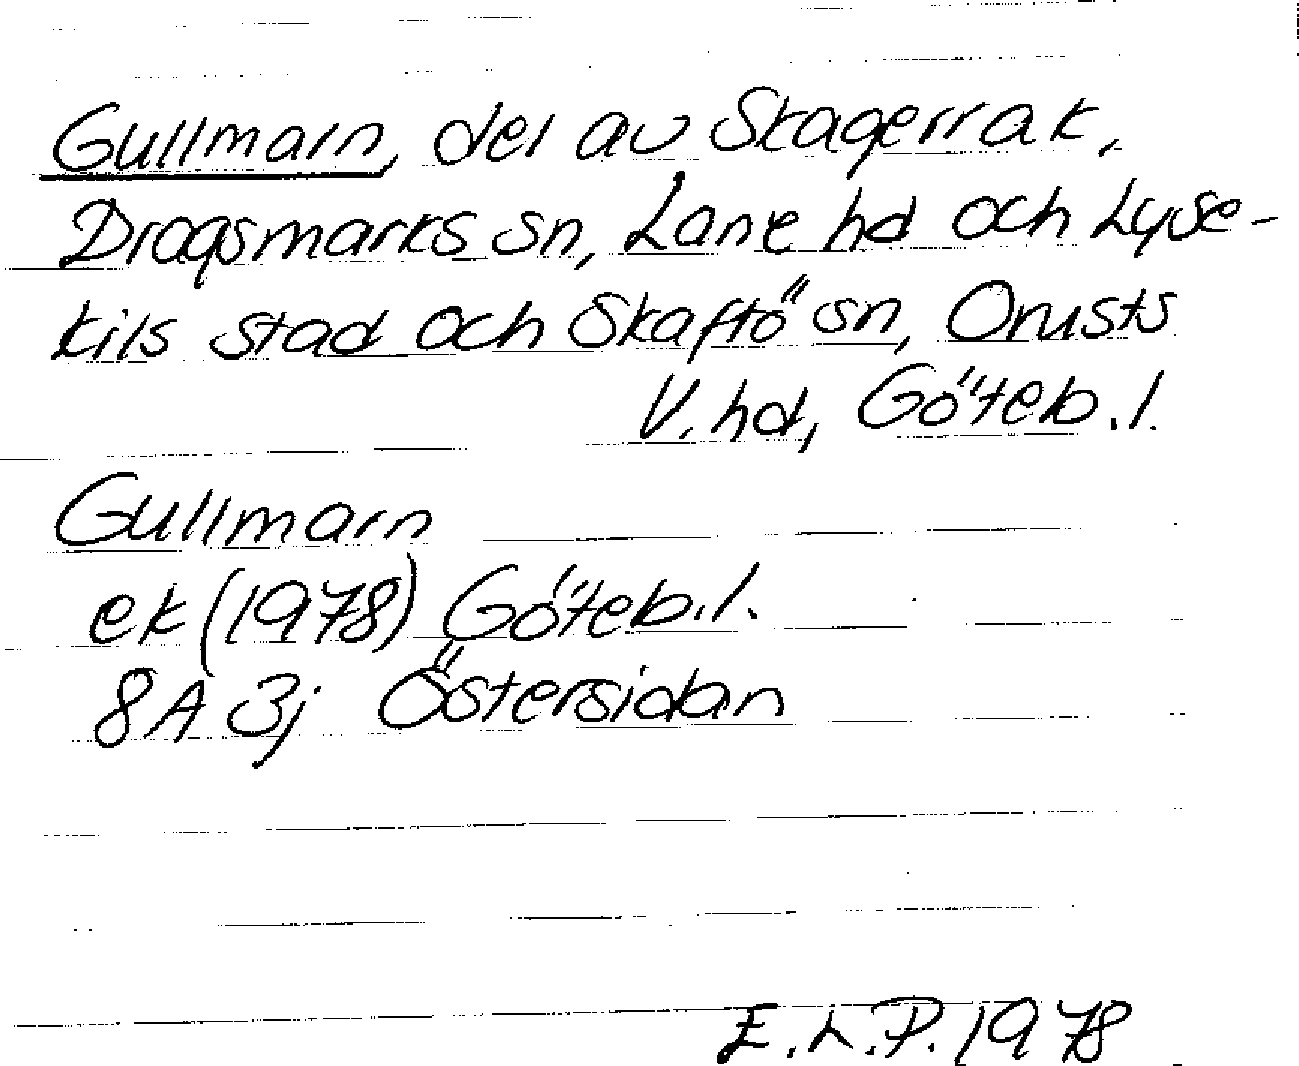 Gullmarn, del av Skagerrak,
Dragsmarks sn, Lane hd och Lyse-
kils stad och Skaftö sn, Orusts
V. hd, Göteb. l.
Gullmarn
ek (1978) Göteb. l.
8A 3j Östersidan
E. L. P. 1978